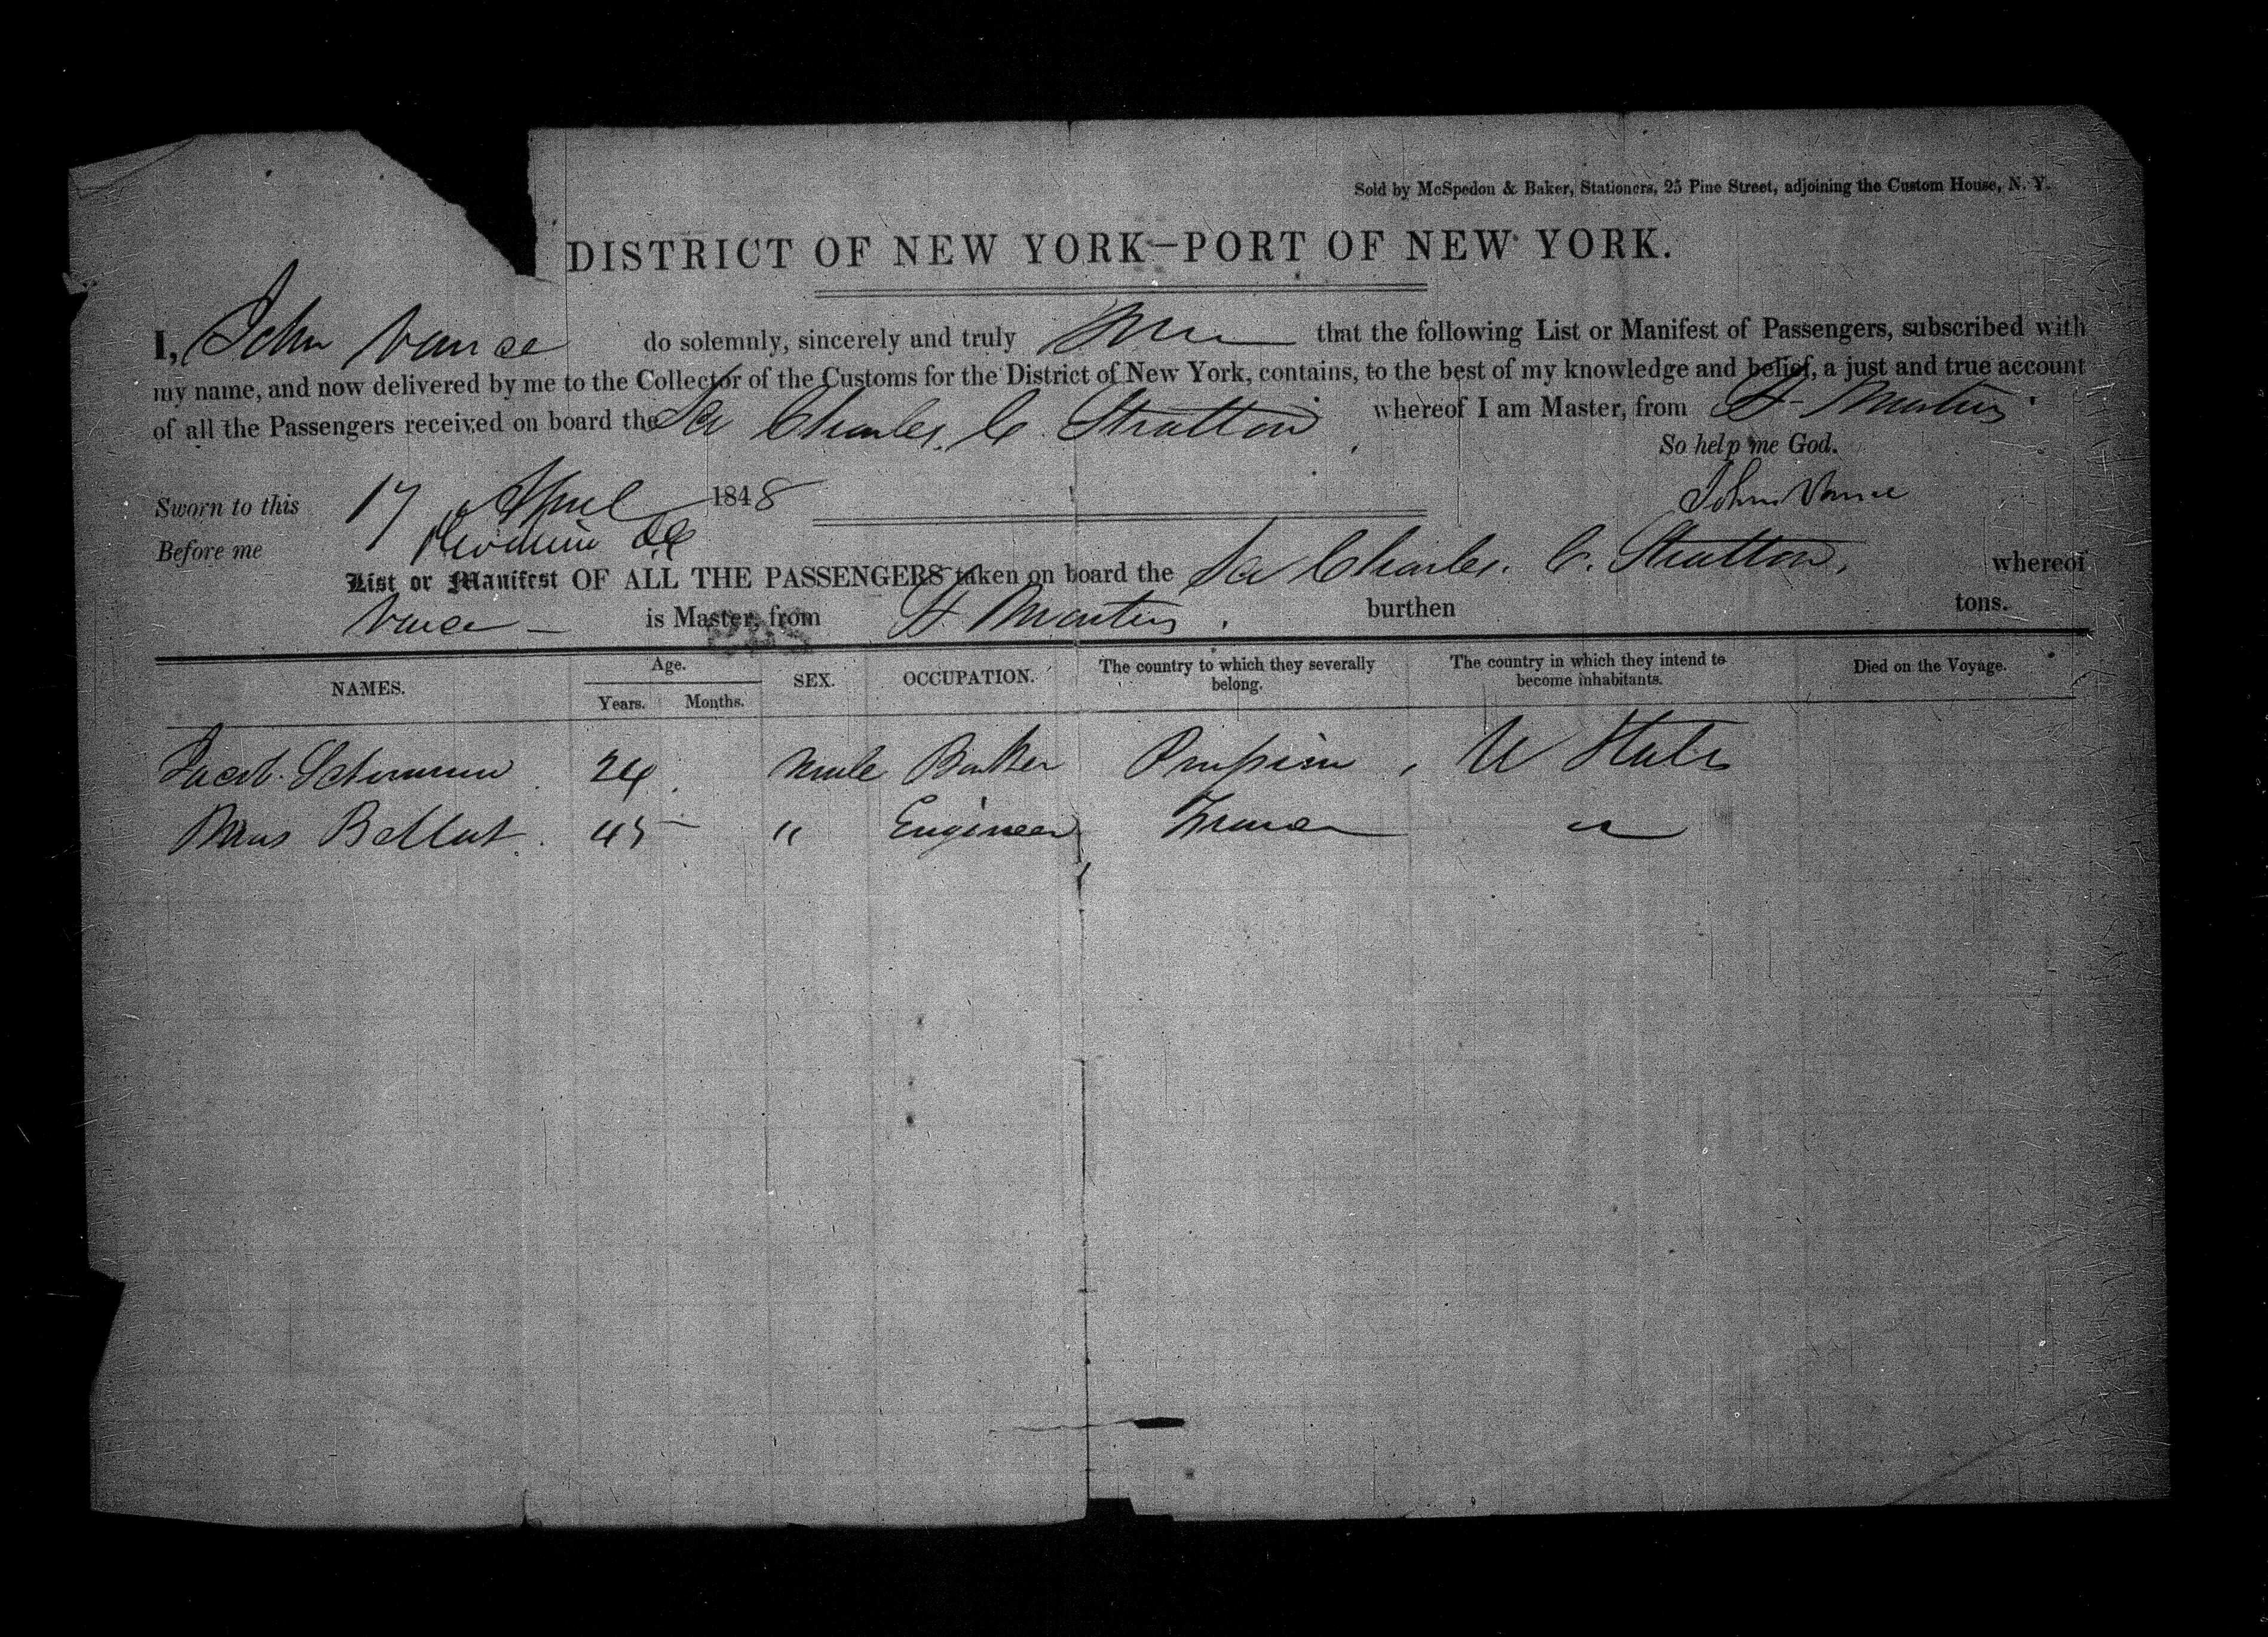 Sold by McSpedon & Baker, Stationers, 25 Pine Street, adjoining the Custom House, N. Y.
DISTRICT OF NEW YORK—PORT OF NEW YORK.
I, John Vance do solemnly, sincerely and truly that the following List or Manifest of Passengers, subscribed with
my name, and now delivered by me to the Collector of the Customs for the District of New York, contains, to the best of my knowledge and belief, a just and true account
of all the Passengers received on board the Charles C. Stratton whereof I am Master, from St Martins
So help me God.
Sworn to this 17 April 1848 John Vance
Before me
List or Manifest OF ALL THE PASSENGERS taken on board the Charles. C. Stratton. whereof
Vance — is Master, from St Martins. burthen tons.
NAMES. Age. SEX. OCCUPATION. The country to which they severally belong. The country in which they intend to become inhabitants. Died on the Voyage.
Years. Months.
Jacob 24 male Baker U States
45 " Engineer France "